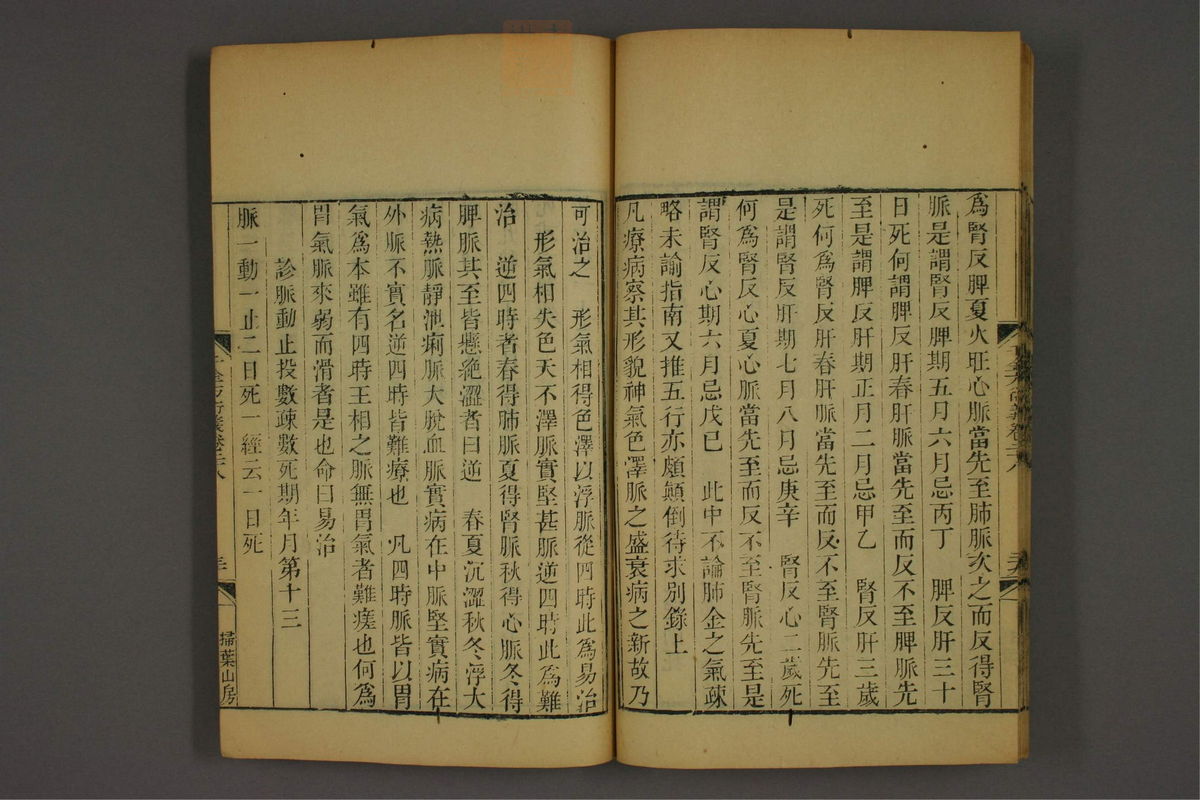 為腎反脾夏火旺心脈當先至肺脈次之而反得腎
脈是謂腎反脾期五月六月忌丙丁　脾反肝三十
日死何謂脾反肝春肝脈當先至而反不至脾脈先
至是謂脾反肝期正月二月忌甲乙　腎反肝三歲
死何為腎反肝春肝脈當先至而反不至腎脈先至
是謂腎反肝期七月八月忌庚辛　腎反心二歲死
何為腎反心夏心脈當先至而反不至腎脈先至是
謂腎反心期六月忌戊已　此中不論肺金之氣疎
略未諭指南又推五行亦頗顛倒待求別錄上
凡療病察其形貌神氣色澤脈之盛衰病之新故乃
可治之　形氣相得色澤以浮脈從四時此為易治
形氣相失色夭不澤脈實堅甚脈逆四時此為難
治　逆四時者春得肺脈夏得腎脈秋得心脈冬得
脾脈其至皆懸絕澀者曰逆　春夏沉澀秋冬浮大
病熱脈靜泄痢脈大脫血脈實病在中脈堅實病在
外脈不實名逆四時皆難療也　凡四時脈皆以胃
氣為本雖有四時王相之脈無胃氣者難瘥也何為
胃氣脈來弱而滑者是也命曰易治
診脈動止投數疎數死期年月第十三
脈一動一止二日死一經云一日死
掃葉山房